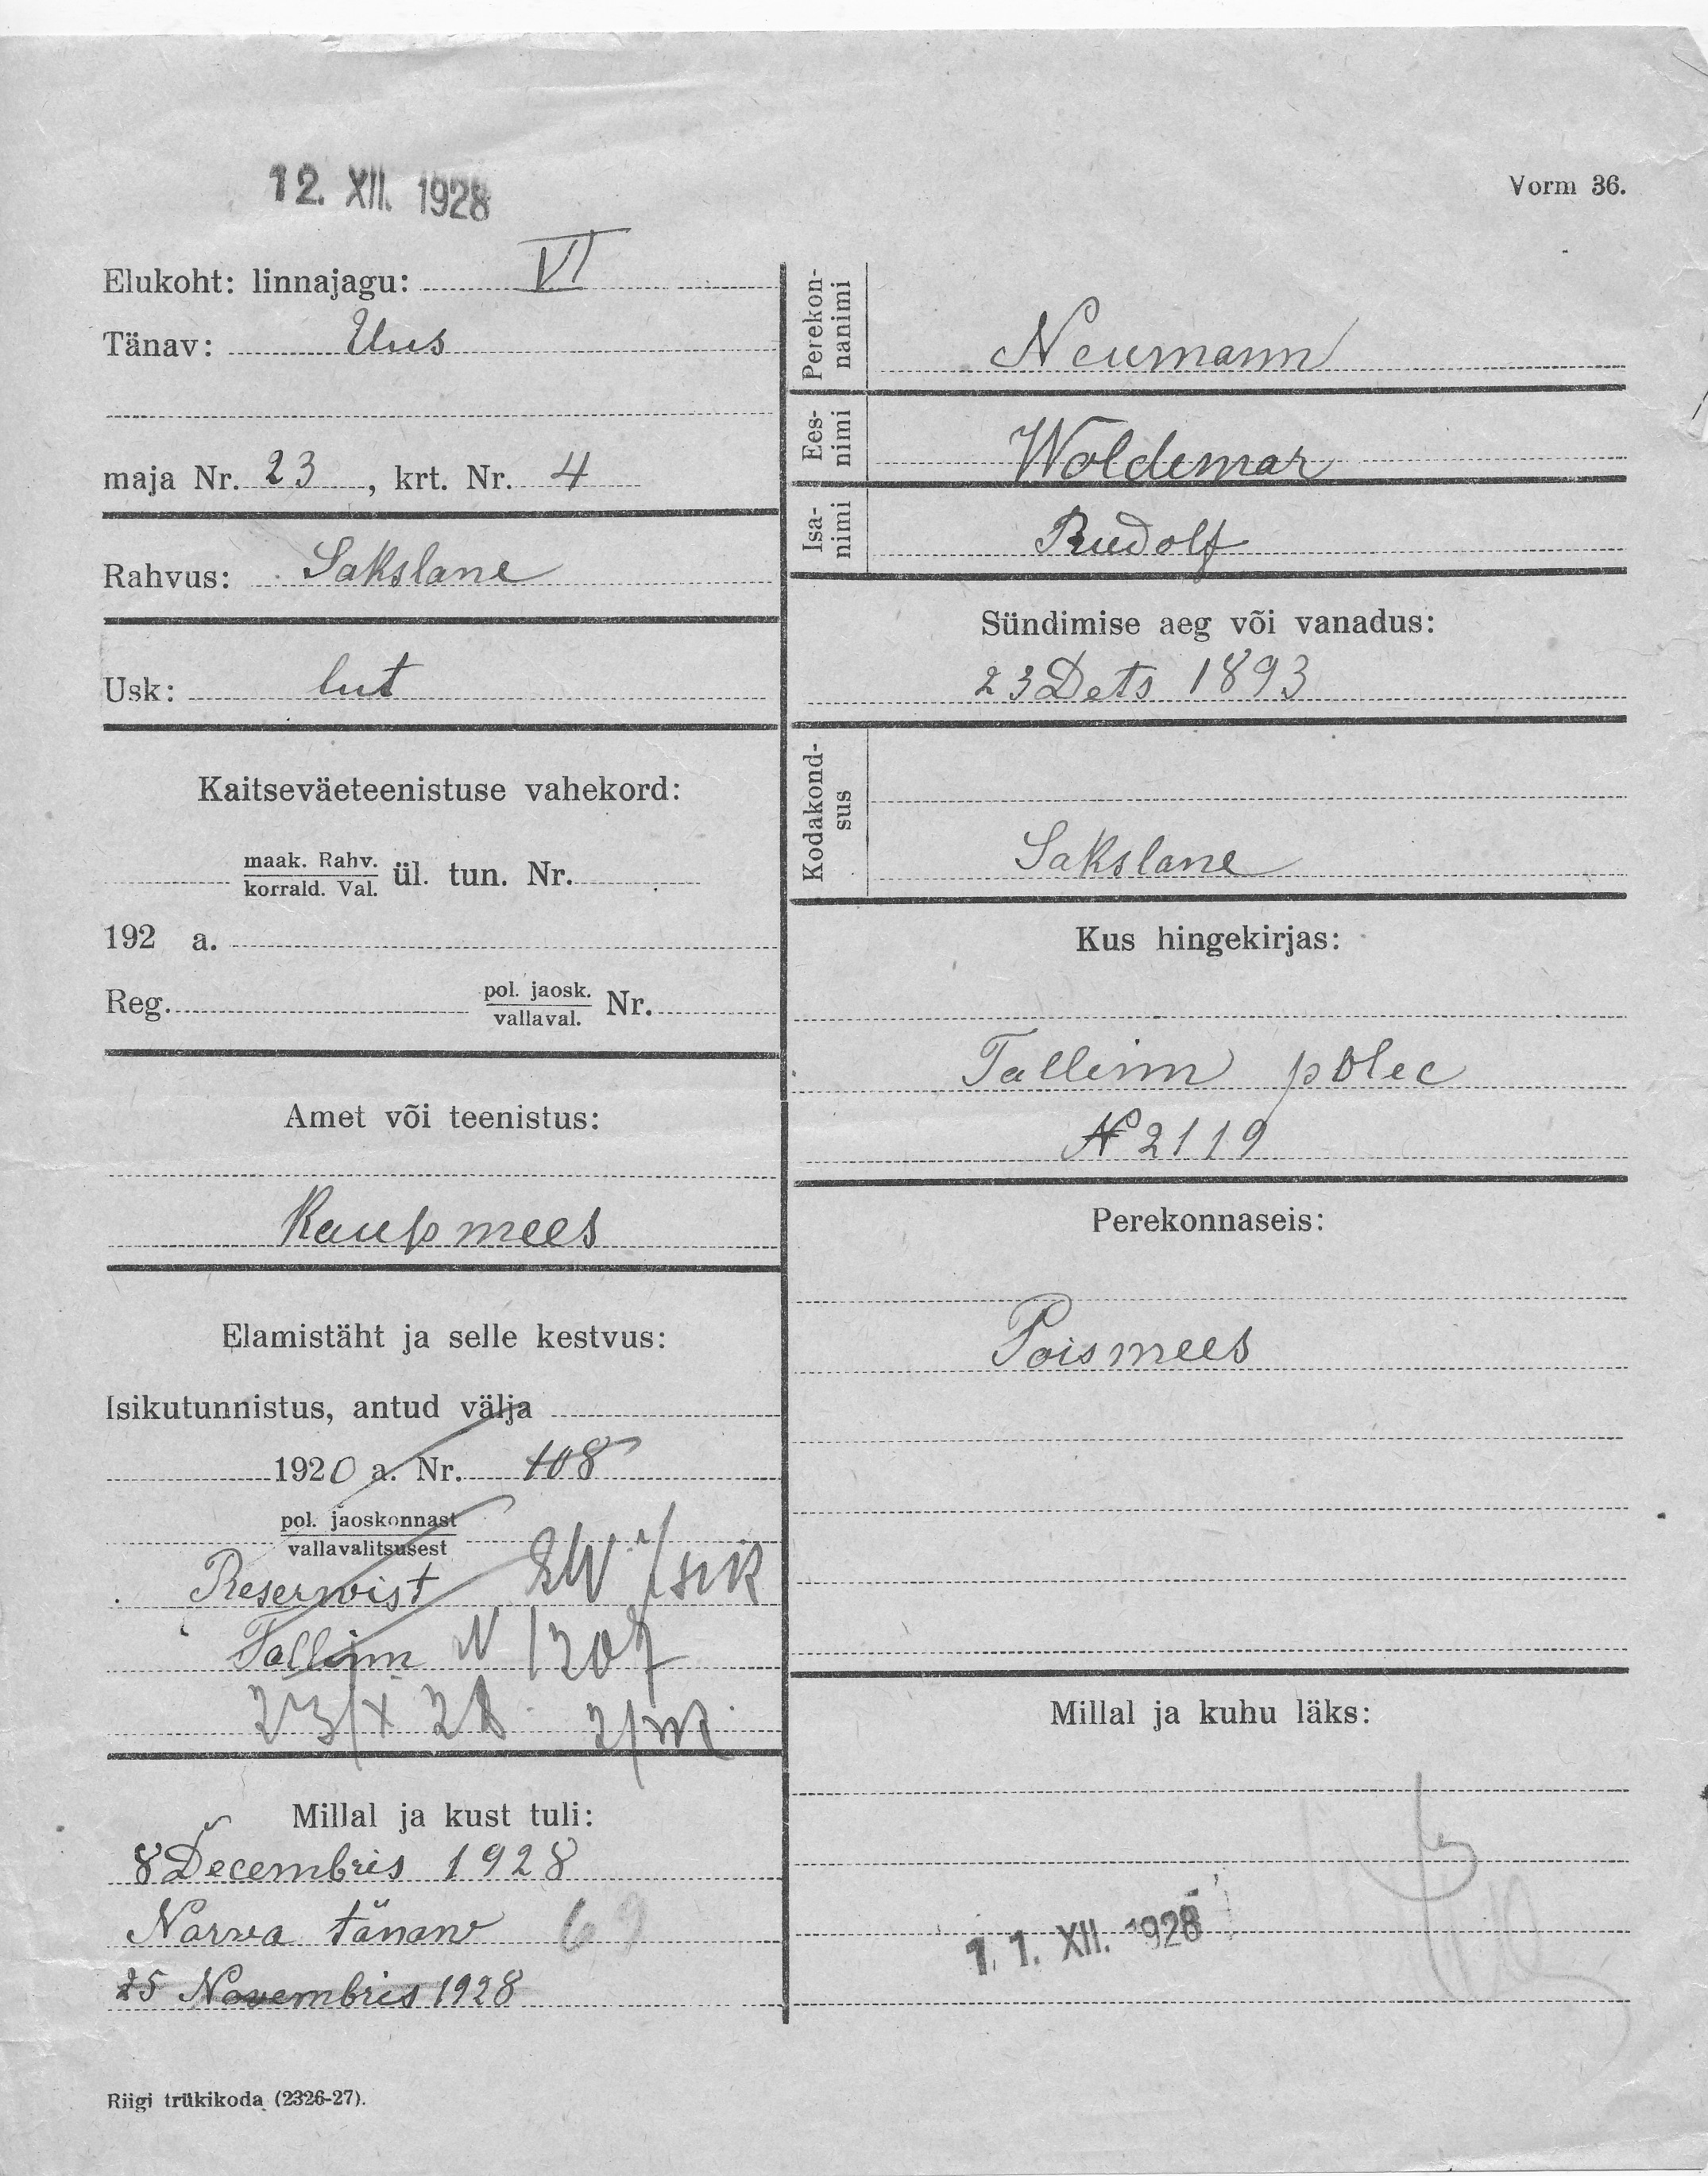 12. XII. 1928
Vorm 36.
Elukoht: linnajagu: VI
Tänav: Uus
maja Nr. 23, krt. Nr. 4
Rahvus: Sakslane
Usk: lut
Kaitseväeteenistuse vahekord:
maak. Rahv.
korrald. Val. ül. tun. Nr.
192 a.
Reg. pol. jaosk.
vallaval. Nr.
Amet või teenistus:
Kaupmees
Elamistäht ja selle kestvus:
Isikutunnistus, antud välja
1920 a. Nr. 108
pol. jaoskonnast
vallavalitsusest
Reserwist
Tallinn N 1207
23/X 28
Millal ja kust tuli:
8 Decembris 1928
Narva tänaw 69
25 Novembris 1928
Riigi trükikoda (2326-27).
Perekon-
nanimi
Neumann
Ees-
nimi
Woldemar
Isa-
nimi
Rudolf
Sündimise aeg või vanadus:
23 Dets 1893
Kodakond-
sus
Sakslane
Kus hingekirjas:
Tallinn polec
N 2119
Perekonnaseis:
Poismees
Millal ja kuhu läks:
11. XII. 1928